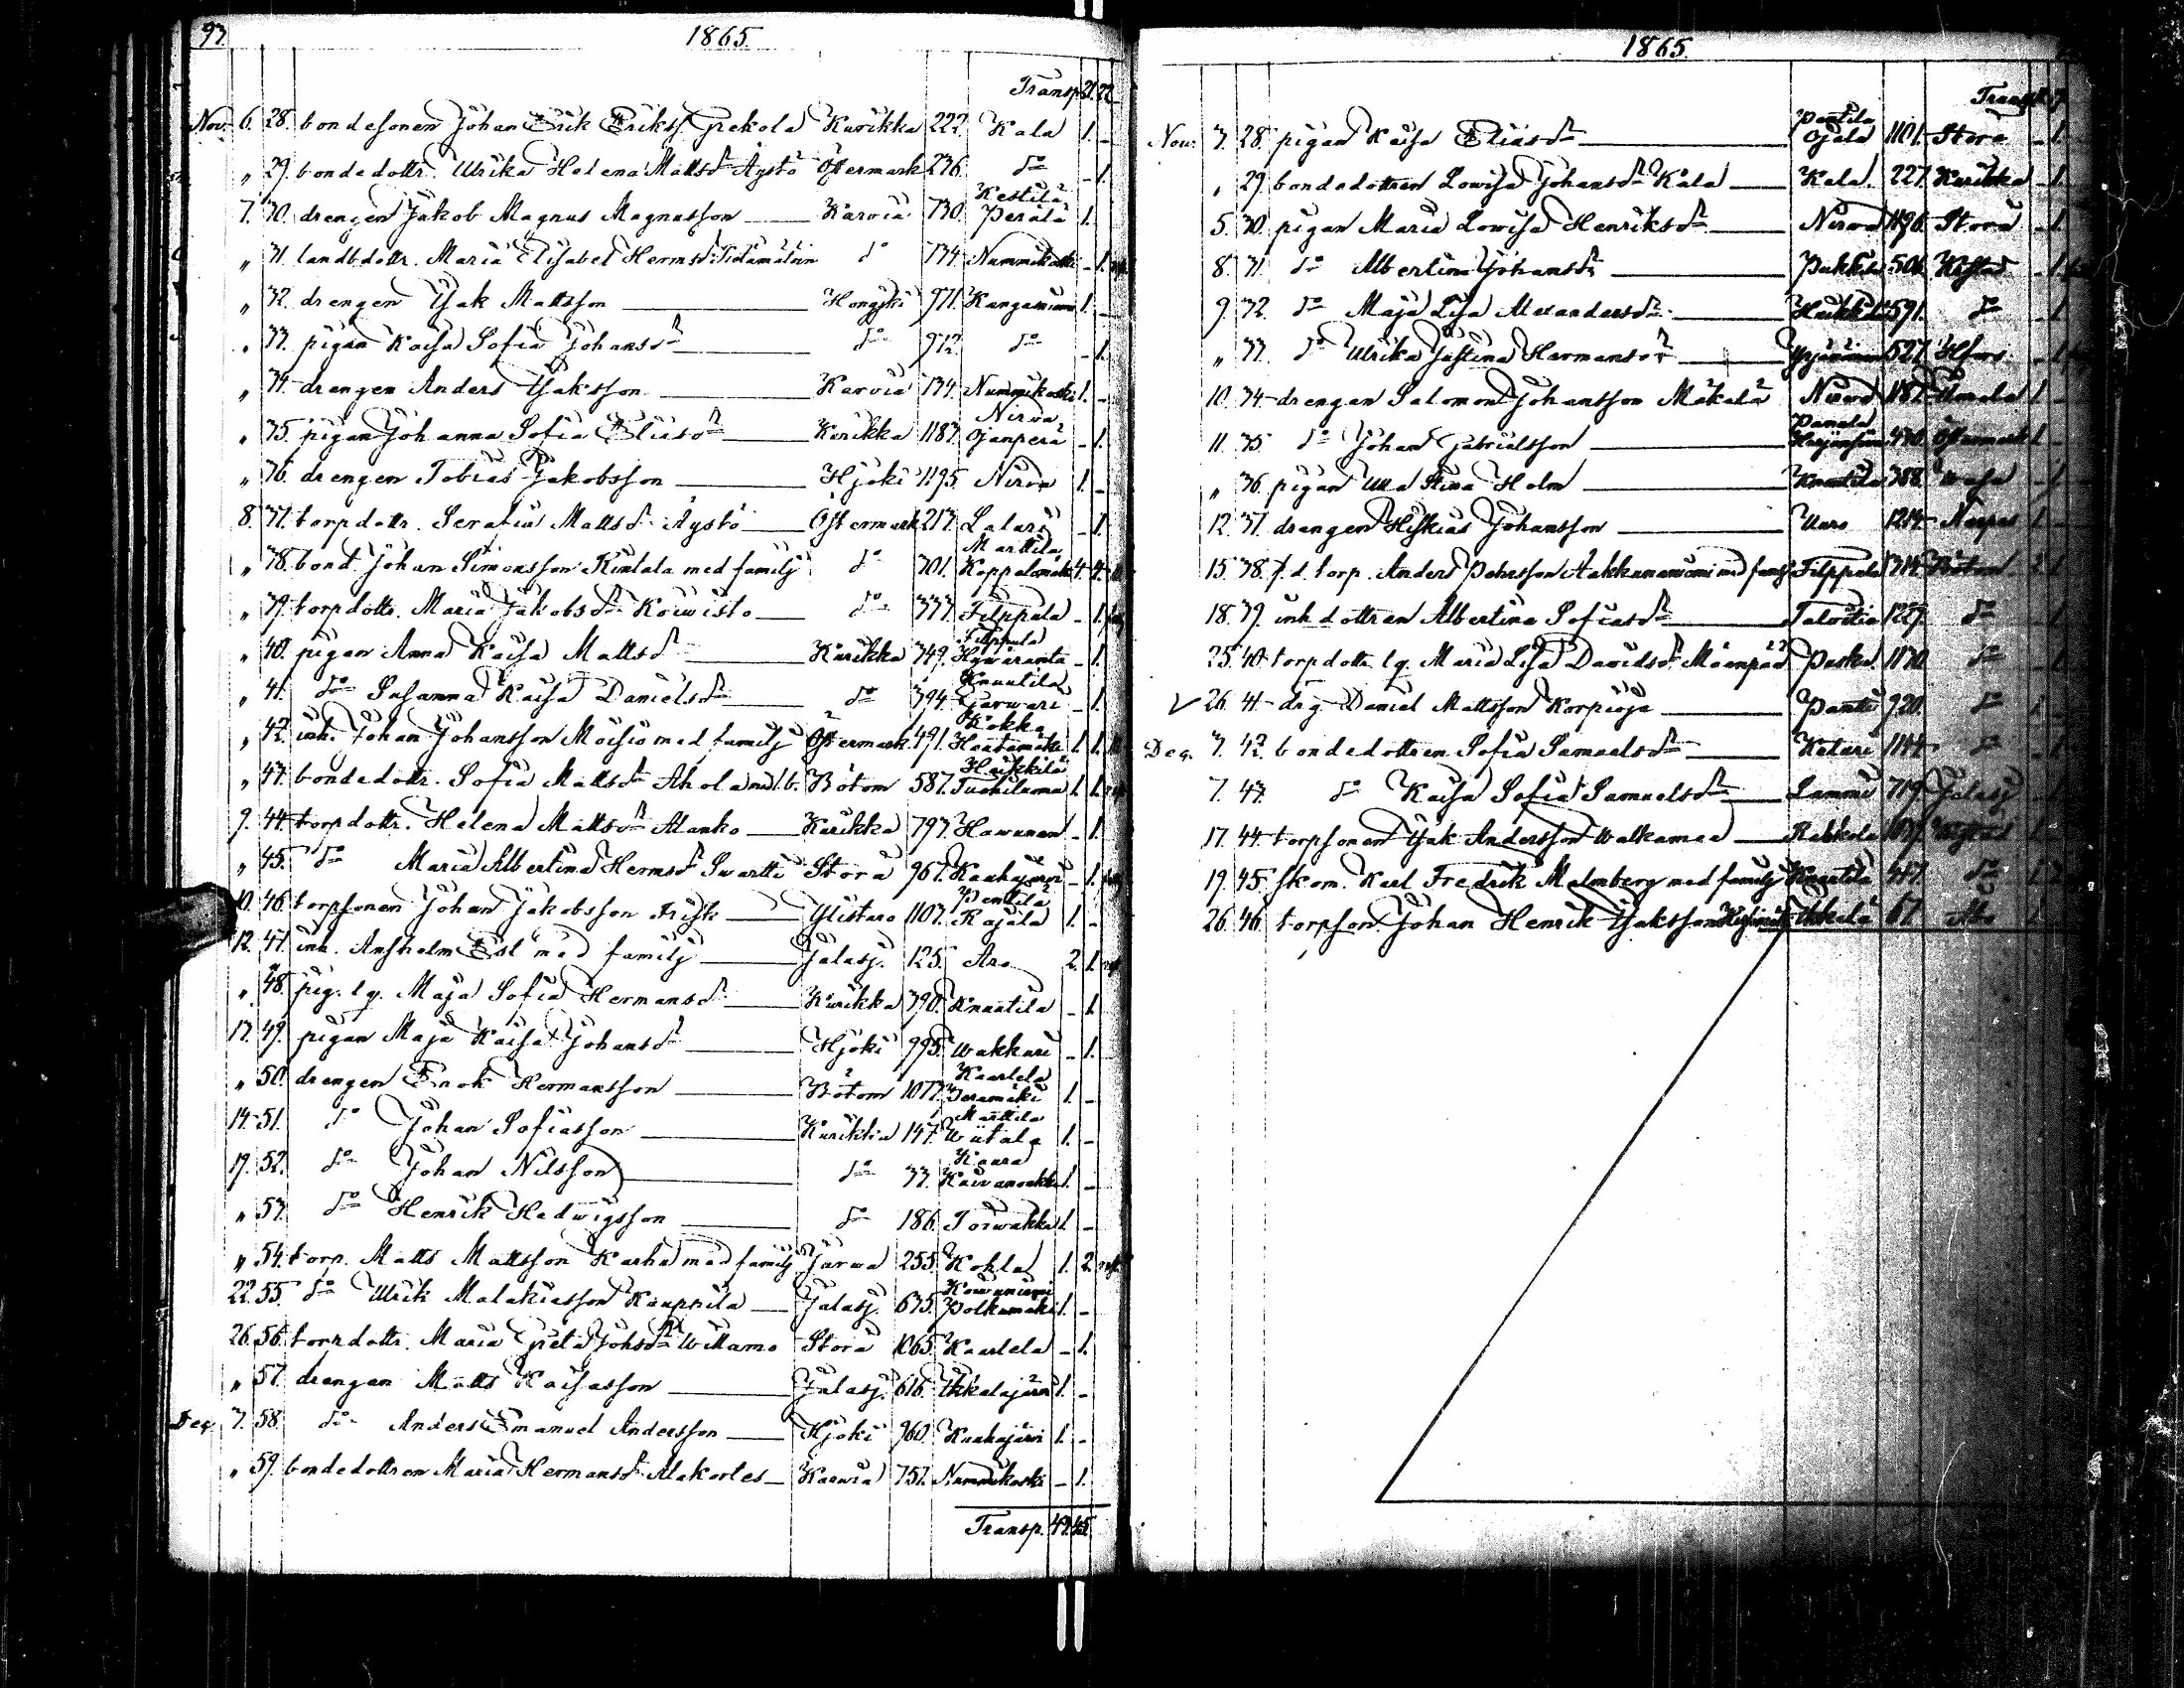 93.
1865.
Transp. 21. 22.
Nov. 6. 28. bondesonen Johan Erik Erikss. Grekola Kurikka 222. Kala 1. -
" 29. bondedottr. Ulrika Helena Mattsdr Äystö Östermark 236. do - 1.
7. 30. drengen Jakob Magnus Magnusson Karvia 730. Kestilä Perälä 1.
" 31. landbdottr. Maria Elisabet Hermsdr do 734. Nummikoski - 1.
" 32. drengen Isak Mattsson Hongjki 971. Kangasniemi 1. -
" 33. pigan Kaisa Sofia Johansdr do 972. do - 1.
" 34. drengen Anders Isaksson Karvia 734. Nummikoski 1. -
" 35. pigan Johanna Sofia Eliasdr Kurikka 1187. Nirva Ojanperä - 1.
" 36. drengen Tobias Jakobsson Hjoki 1195. Nirva 1. -
8. 37. torpdottr. Serafia Mattsdr Äystö Östermark 1217. Lalari - 1.
" 38. bond. Johan Simonsson Rintala med familj do 301. Marttila Koppelomäki 4. 4.
" 39. torpdottr. Maria Jakobsdr Koiwisto do 377. Filppula - 1.
" 40. pigan Anna Kaisa Mattsdr Kurikka 349. Filppula Hywäranta - 1.
" 41. do Susanna Kaisa Danielsdr do 394. Knuutila Garwari - 1.
" 42. inh. Johan Johansson Moisio med familj Östermark. 491. Kokko Hautamäki 1. 1.
" 43. bondedottr. Sofia Mattsdr Ahola med 1 b. Bötom 587. Heikkilä Tuohiluoma 1. 1.
9. 44. torpdottr. Helena Mattsdr Alanko Kurikka 797. Hawunen - 1.
" 45. do Maria Albertina Hermsdr Swartti Storå 967. Kauhajärvi - 1.
10. 46. torpsonen Johan Jakobsson Frisk Ylistaro 1107. Penttilä Rajala 1. -
12. 47. inh. Anshelm Esl med familj Jalasj. 125. Aro 2. 1.
" 48. pig. lg. Maja Sofia Hermansdr Kurikka 390. Knuutila - 1.
13. 49. pigan Maja Kaisa Johansdr Hjoki 995. Wakkuri - 1.
" 50. drengen Enok Hermansson Bötom 1073. Kaarlela Peramäki 1. -
14. 51. do Johan Sofiasson Kurikka 147. Marttila Wiitala 1. -
19. 52. do Johan Nilsson do 33. Kaura Kaivanoukko 1. -
" 53. do Henrik Hedwigsson do 186. Torwakka 1. -
" 54. torp. Matts Mattsson Karha med familj Järwa 255. Kohla 1. 2.
22. 55. do Ulrik Malakiasson Kauppila Jalasj. 675. Koiwuniemi Polkumäki 1. -
26. 56. torpdottr. Maria Greta Johsdr Willamo Storå 1065. Kaarlela - 1.
" 57. drengen Matts Kaisasson Jalasj. 616. Ikkalajärvi 1. -
Dec. 3. 58. do Anders Emanuel Andersson Hjoki 960. Kauhajärvi 1. -
" 59. bondedottren Maria Hermansdr Alakortes Kaawia 757. Nummikoski - 1.
Transp. 43. 45.
1865.
Transp.
Nov. 3. 28. pigan Kaisa Eliasdr Pentila Ojala 1101. Storå - 1.
" 29. bondedottren Lowisa Johansdr Kala Kala. 227. Kurikka - 1.
5. 30. pigan Maria Lowisa Henriksdr Nirwa 1196. Storå - 1.
8. 31. do Albertina Johansdr Pukkila 506. - 1.
9. 32. do Maja Lisa Alexandersdr Heikkilä 591. do - 1.
" 33. do Ulrika Justina Hermansdr 527. Hfors - 1.
10. 34. drengen Salomon Johansson Mäkelä Nirwa 1187. 1. -
11. 35. do Johan Gabrielsson Panula 470. Östermark 1. -
" 36. pigan Ulla Stina Holm Knuutila 388. Wasa - 1.
12. 37. drengen Hiskias Johansson Uuro 1214. Nerpes 1. -
15. 38. f.d. torp. Anders Petersson med familj Filppula 314. Bötom
18. 39. inh dottren Albertina Sofiasdr Taloitis 1227. do
25. 40. torpdottr lg. Maria Lisa Davidsdr Mäenpää Paska. 1170. do
26. 41. drg Daniel Mattsson Korpioja Pantti 920. do
Dec. 3. 42. bondedottren Sofia Samuelsdr Keturi 1144. do
7. 43. do Kaisa Sofia Samuelsdr Lammi 719. Jalasj
17. 44. torpsonen Isak Andersson Walkamaa
19. 45. skom. Karl Fredrik Malmberg med familj Knuutila 417. do
26. 46. torpson. Johan Henrik Isaksson Ikkelä 67. Åbo